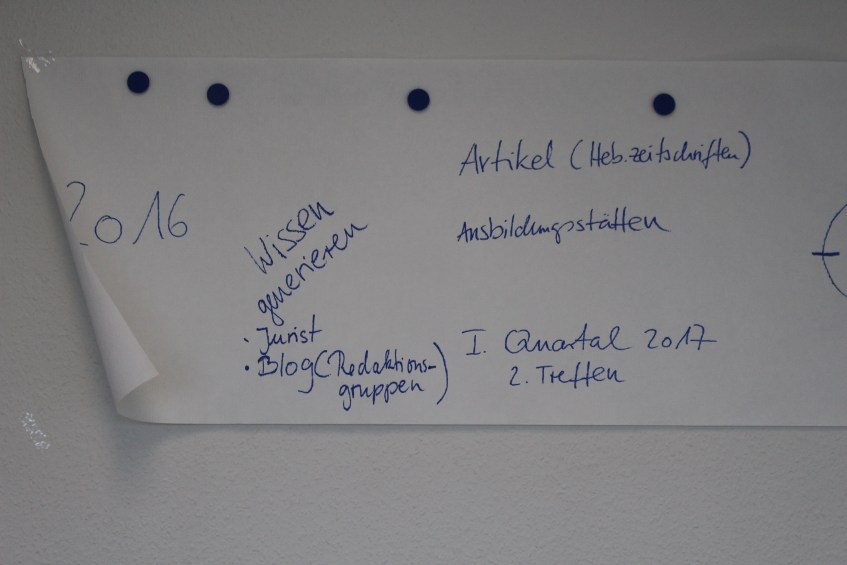 2016
Wissen
generieren
• Jurist
• Blog (Redaktions-
gruppen)
Artikel (Heb.zeitschriften)
Ausbildungsstätten
I. Quartal 2017
2. Treffen